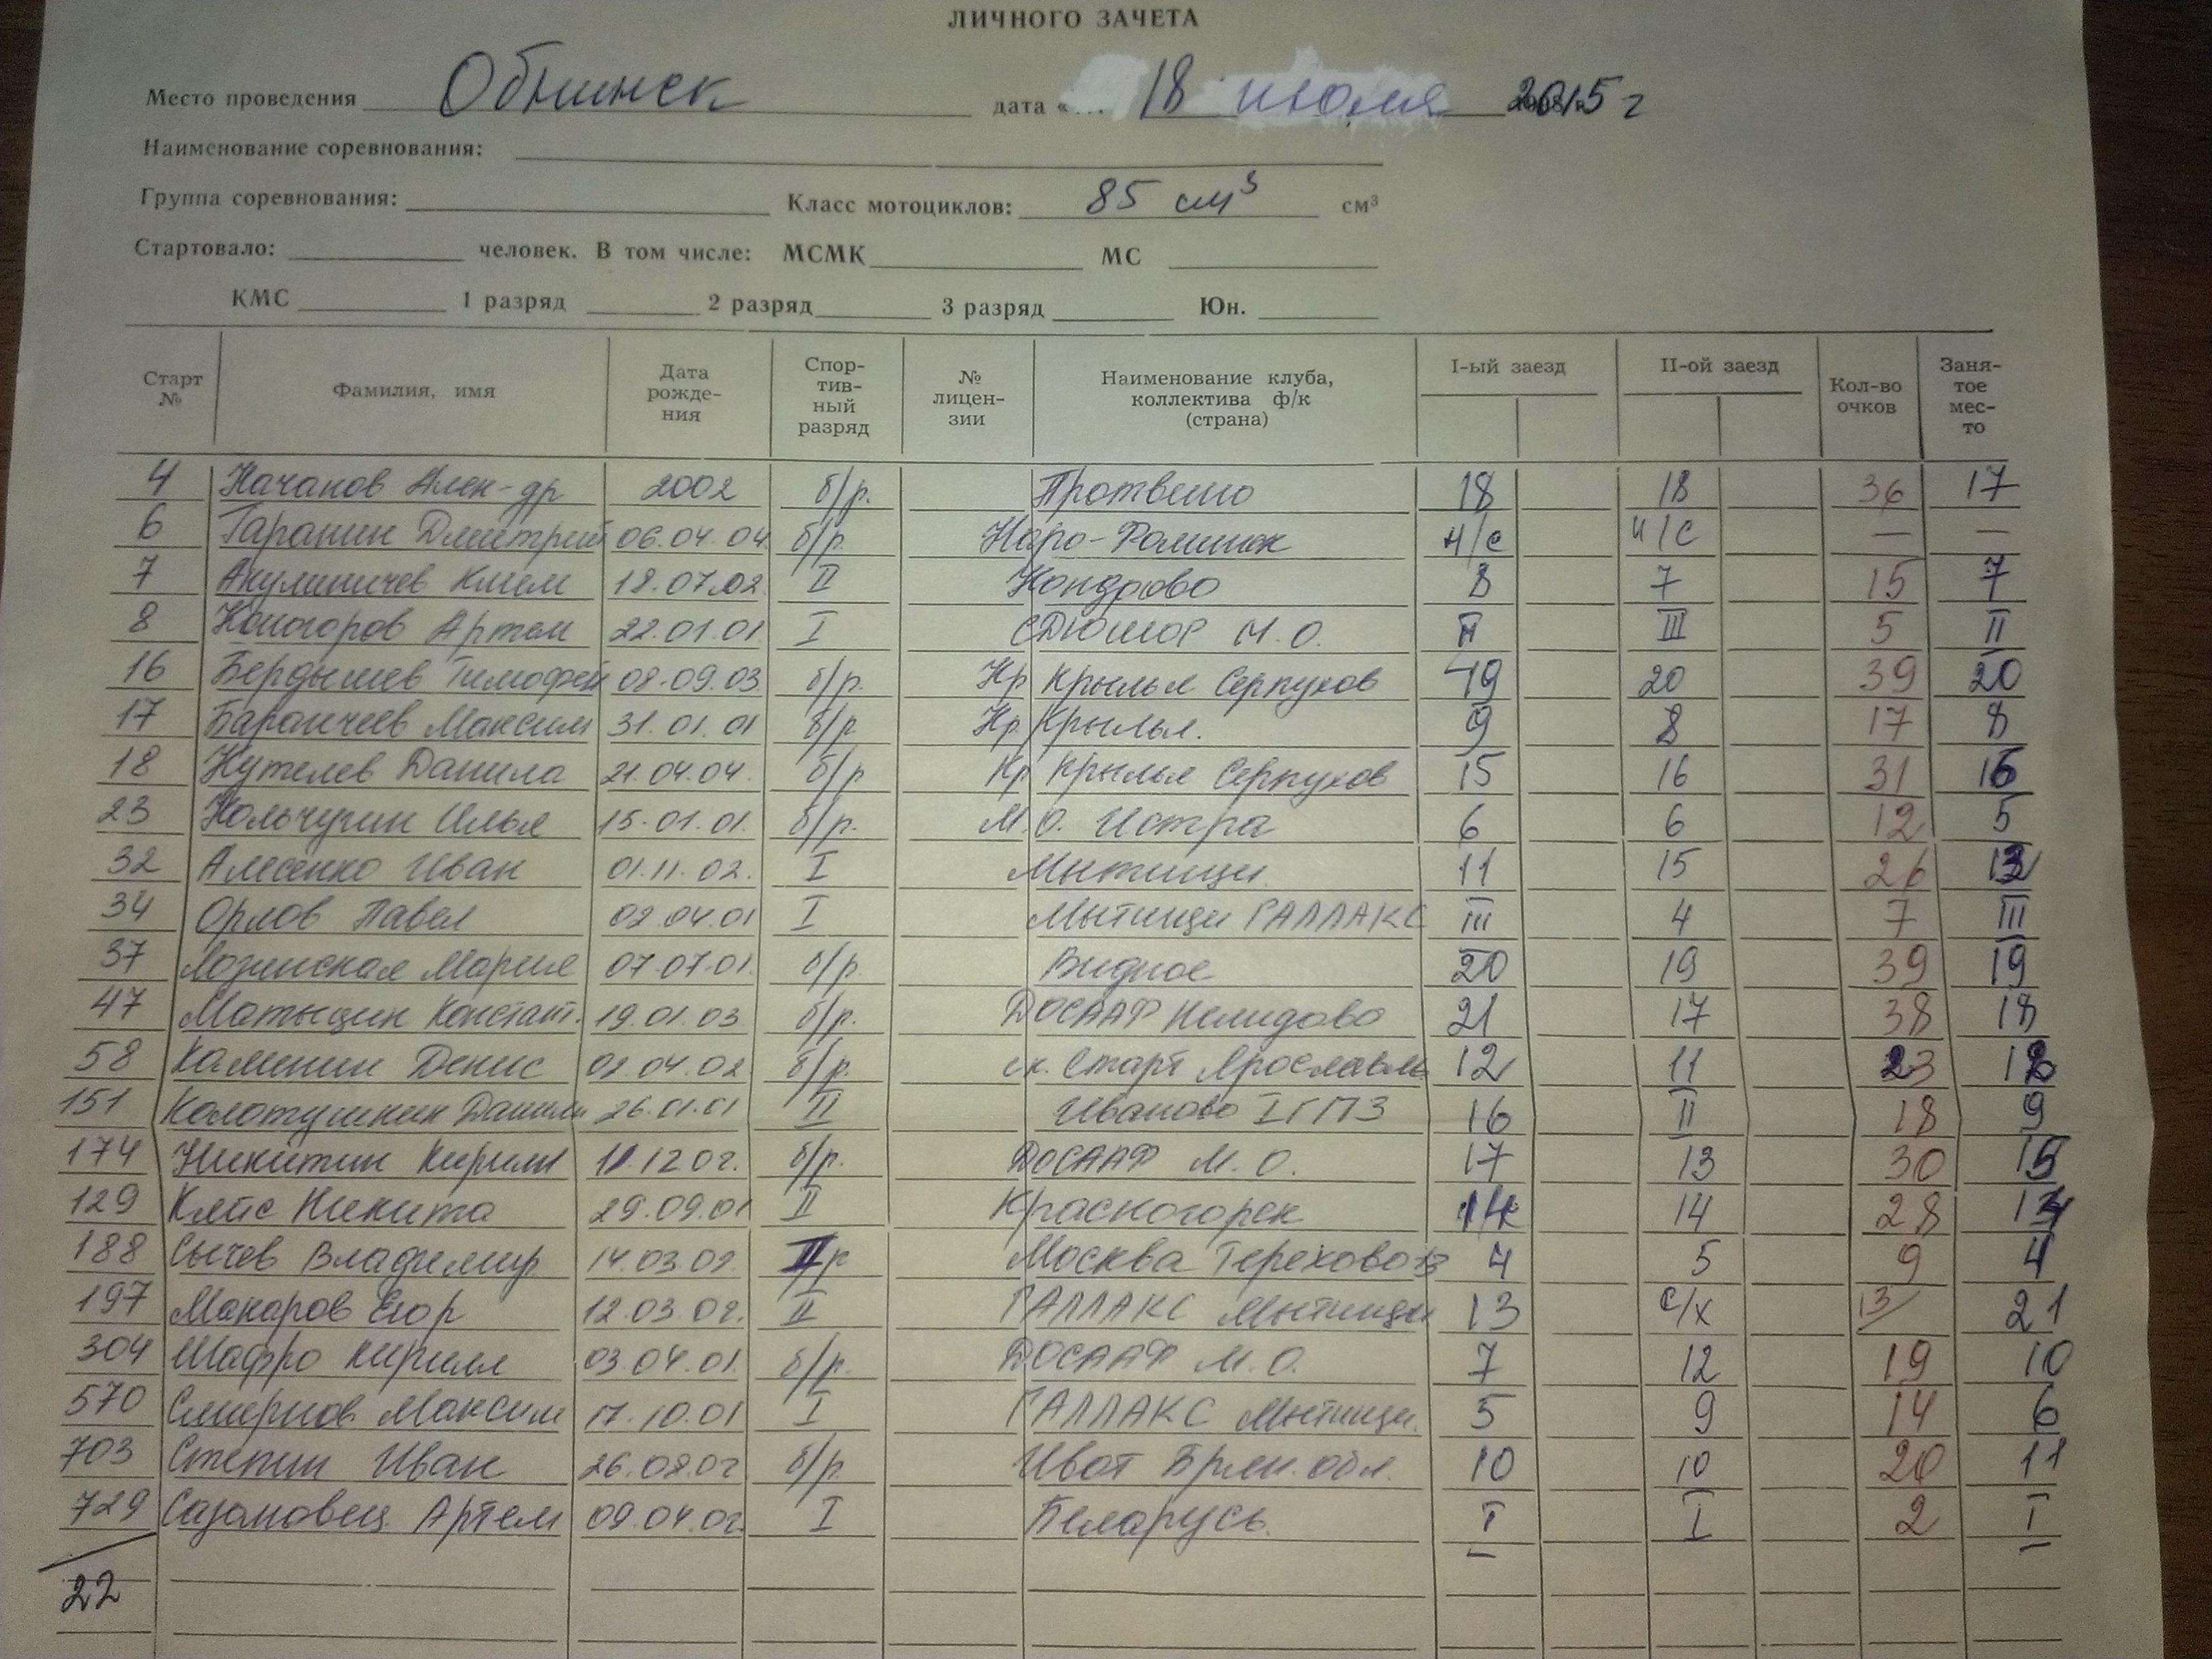 ЛИЧНОГО ЗАЧЕТА
Место проведения Обнинск дата « 18 июля 2015 г
Наименование соревнования:
Группа соревнования: Класс мотоциклов: 85 см³ см³
Стартовало: человек. В том числе: МСМК МС
КМС 1 разряд 2 разряд 3 разряд Юн.
Старт № Фамилия, имя Дата рожде-ния Спор-тив-ный разряд № лицен-зии Наименование клуба, коллектива ф/к (страна) I-ый заезд II-ой заезд Кол-во очков Заня-тое мес-то
4 Качанов Алек-др 2002 б/р. Протвино 18 18 36 17
6 Гаранин Дмитрий 06.04.04 б/р. Наро-Фоминск н/с н/с — —
7 Акулиничев Клим 18.07.02 II Кондрово 8 7 15 7
8 Коногоров Артем 22.01.01 I СДЮШОР М.О. II III 5 II
16 Бердышев Тимофей 08.09.03 б/р. Кр Крылья Серпухов 19 20 39 20
17 Баранчеев Максим 31.01.01 б/р Кр. Крылья. 9 8 17 8
18 Кутелев Данила 21.04.04. б/р Кр Крылья Серпухов 15 16 31 16
23 Кольчугин Илья 15.01.01. б/р. М.О. Истра 6 6 12 5
32 Алесенко Иван 01.11.02. I Мытищи 11 15 26 13
34 Орлов Павел 02.04.01 I Мытищи ГАЛЛАКС III 4 7 III
37 Лозинская Мария 07.07.01. б/р. Видное 20 19 39 19
47 Матыцин Констант. 19.01.03 б/р. ДОСААФ Нелидово 21 17 38 18
58 Каминин Денис 02.04.02 б/р. ск. Старт Ярославль 12 11 23 12
151 Колотушкин Данила 26.01.01 II Иваново 16 II 18 9
174 Никитин Кирилл 11.12 02. б/р. ДОСААФ М.О. 17 13 30 15
129 Клейс Никита 29.09.01 II Красногорск 14 14 28 14
188 Сычев Владимир 14.03.02. II Москва Терехово 4 5 9 4
197 Макаров Егор 12.03.02. II ГАЛЛАКС Мытищи 13 с/х 13/ 21
304 Шафро Кирилл 03.04.01. б/р. ДОСААФ М.О. 7 12 19 10
570 Смирнов Максим 17.10.01 I ГАЛЛАКС Мытищи. 5 9 14 6
703 Степин Иван 26.08.02 б/р. Ивот Брян. обл. 10 10 20 11
729 Сазановец Артем 09.04.02. I Беларусь. I I 2 I
22